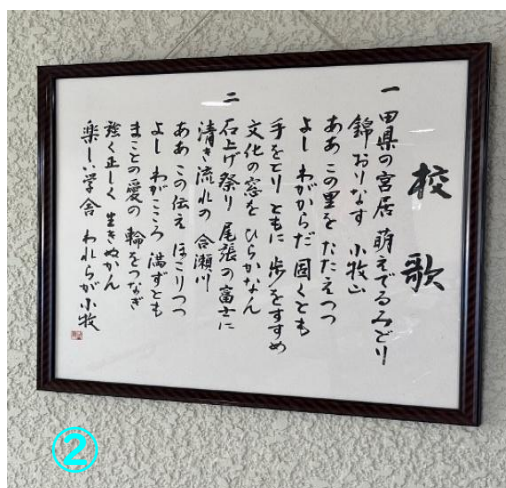 校歌
一 田県の宮居 萌えでるみどり
錦おりなす 小牧山
ああ この里を たたえつつ
よし わがからだ 固くとも
手をとり ともに 歩をすすめ
文化の窓を ひらかなん
二 石上げ祭り 尾張の富士に
清き流れの 合瀬川
ああ この伝え ほこりつつ
よし わがこころ 満ずとも
まことの愛の 輪をつなぎ
強く正しく 生きぬかん
楽しい学舎 われらが小牧
②